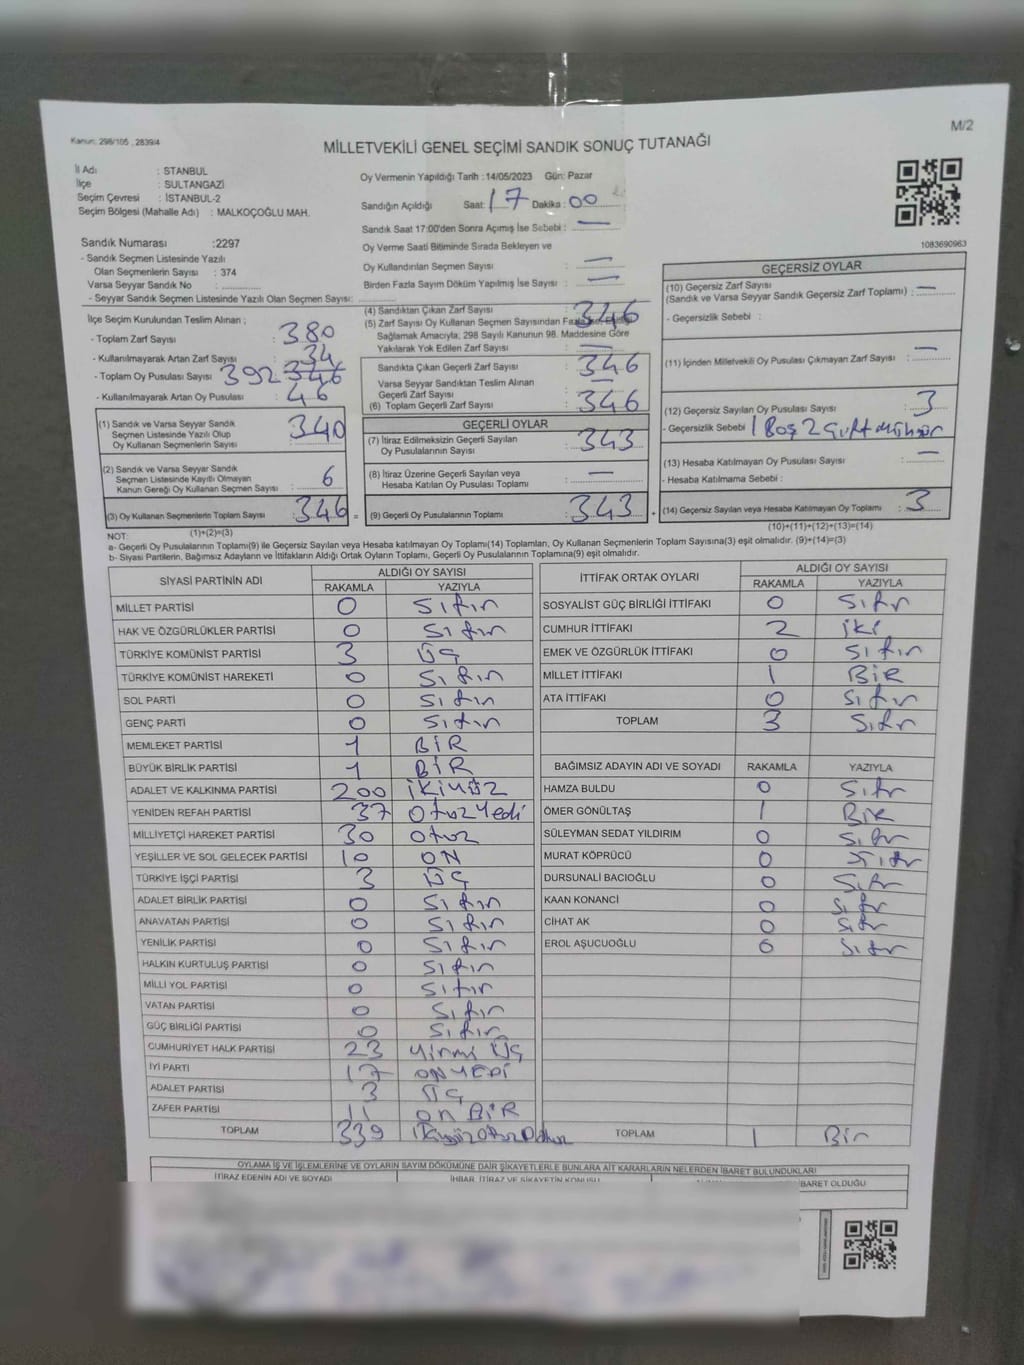 Kanun: 298/105 , 2839/4
M/2
MİLLETVEKİLİ GENEL SEÇİMİ SANDIK SONUÇ TUTANAĞI
İl Adı : STANBUL
İlçe : SULTANGAZİ
Seçim Çevresi : İSTANBUL-2
Seçim Bölgesi (Mahalle Adı) : MALKOÇOĞLU MAH.
Sandık Numarası :2297
- Sandık Seçmen Listesinde Yazılı
Olan Seçmenlerin Sayısı : 374
Varsa Seyyar Sandık No : ..............
- Seyyar Sandık Seçmen Listesinde Yazılı Olan Seçmen Sayısı: ..............
Oy Vermenin Yapıldığı Tarih :14/05/2023 Gün: Pazar
Sandığın Açıldığı Saat: 17 Dakika: 00
Sandık Saat 17:00'den Sonra Açımış İse Sebebi : —
Oy Verme Saati Bitiminde Sırada Bekleyen ve
Oy Kullandırılan Seçmen Sayısı : —
Birden Fazla Sayım Döküm Yapılmış İse Sayısı : —
1083690963
İlçe Seçim Kurulundan Teslim Alınan ;
- Toplam Zarf Sayısı : 380
- Kullanılmayarak Artan Zarf Sayısı : 34
- Toplam Oy Pusulası Sayısı : 392 346
- Kullanılmayarak Artan Oy Pusulası : 46
(1) Sandık ve Varsa Seyyar Sandık
Seçmen Listesinde Yazılı Olup
Oy Kullanan Seçmenlerin Sayısı 340
(2) Sandık ve Varsa Seyyar Sandık
Seçmen Listesinde Kayıtlı Olmayan
Kanun Gereği Oy Kullanan Seçmen Sayısı : 6
(3) Oy Kullanan Seçmenlerin Toplam Sayısı 346 =
(1)+(2)=(3)
(4) Sandıktan Çıkan Zarf Sayısı : 346
(5) Zarf Sayısı Oy Kullanan Seçmen Sayısından Fazla ise, Eşitliği
Sağlamak Amacıyla; 298 Sayılı Kanunun 98. Maddesine Göre
Yakılarak Yok Edilen Zarf Sayısı : —
Sandıkta Çıkan Geçerli Zarf Sayısı : 346
Varsa Seyyar Sandıktan Teslim Alınan
Geçerli Zarf Sayısı : —
(6) Toplam Geçerli Zarf Sayısı : 346
GEÇERLİ OYLAR
(7) İtiraz Edilmeksizin Geçerli Sayılan
Oy Pusulalarının Sayısı : 343
(8) İtiraz Üzerine Geçerli Sayılan veya
Hesaba Katılan Oy Pusulası Toplamı : —
(9) Geçerli Oy Pusulalarının Toplamı : 343 +
GEÇERSİZ OYLAR
(10) Geçersiz Zarf Sayısı
(Sandık ve Varsa Seyyar Sandık Geçersiz Zarf Toplamı) : —
- Geçersizlik Sebebi :
(11) İçinden Milletvekili Oy Pusulası Çıkmayan Zarf Sayısı : —
(12) Geçersiz Sayılan Oy Pusulası Sayısı : 3
- Geçersizlik Sebebi : 1 Boş 2 çift mühür
(13) Hesaba Katılmayan Oy Pusulası Sayısı : —
- Hesaba Katılmama Sebebi :
(14) Geçersiz Sayılan veya Hesaba Katılmayan Oy Toplamı : 3
(10)+(11)+(12)+(13)=(14)
NOT:
a- Geçerli Oy Pusulalarının Toplamı(9) ile Geçersiz Sayılan veya Hesaba katılmayan Oy Toplamı(14) Toplamları, Oy Kullanan Seçmenlerin Toplam Sayısına(3) eşit olmalıdır. (9)+(14)=(3)
b- Siyasi Partilerin, Bağımsız Adayların ve İttifakların Aldığı Ortak Oyların Toplamı, Geçerli Oy Pusulalarının Toplamına(9) eşit olmalıdır.
SİYASİ PARTİNİN ADI ALDIĞI OY SAYISI
RAKAMLA YAZIYLA
MİLLET PARTİSİ 0 Sıfır
HAK VE ÖZGÜRLÜKLER PARTİSİ 0 Sıfır
TÜRKİYE KOMÜNİST PARTİSİ 3 ÜÇ
TÜRKİYE KOMÜNİST HAREKETİ 0 Sıfır
SOL PARTİ 0 Sıfır
GENÇ PARTİ 0 Sıfır
MEMLEKET PARTİSİ 1 BİR
BÜYÜK BİRLİK PARTİSİ 1 BİR
ADALET VE KALKINMA PARTİSİ 200 İKİYÜZ
YENİDEN REFAH PARTİSİ 37 Otuz Yedi
MİLLİYETÇİ HAREKET PARTİSİ 30 Otuz
YEŞİLLER VE SOL GELECEK PARTİSİ 10 ON
TÜRKİYE İŞÇİ PARTİSİ 3 ÜÇ
ADALET BİRLİK PARTİSİ 0 Sıfır
ANAVATAN PARTİSİ 0 Sıfır
YENİLİK PARTİSİ 0 Sıfır
HALKIN KURTULUŞ PARTİSİ 0 Sıfır
MİLLİ YOL PARTİSİ 0 Sıfır
VATAN PARTİSİ 0 Sıfır
GÜÇ BİRLİĞİ PARTİSİ 0 Sıfır
CUMHURİYET HALK PARTİSİ 23 Yirmi ÜÇ
İYİ PARTİ 17 ONYEDİ
ADALET PARTİSİ 3 ÜÇ
ZAFER PARTİSİ 11 ON BİR
TOPLAM 339
İTTİFAK ORTAK OYLARI ALDIĞI OY SAYISI
RAKAMLA YAZIYLA
SOSYALİST GÜÇ BİRLİĞİ İTTİFAKI 0 Sıfır
CUMHUR İTTİFAKI 2 iki
EMEK VE ÖZGÜRLÜK İTTİFAKI 0 Sıfır
MİLLET İTTİFAKI 1 BİR
ATA İTTİFAKI 0 Sıfır
TOPLAM 3 Sıfır
BAĞIMSIZ ADAYIN ADI VE SOYADI RAKAMLA YAZIYLA
HAMZA BULDU 0 Sıfır
ÖMER GÖNÜLTAŞ 1 Bir
SÜLEYMAN SEDAT YILDIRIM 0 Sıfır
MURAT KÖPRÜCÜ 0 Sıfır
DURSUNALİ BACIOĞLU 0 Sıfır
KAAN KONANCİ 0 Sıfır
CİHAT AK 0 Sıfır
EROL AŞUCUOĞLU 0 Sıfır
TOPLAM 1 Bir
OYLAMA İŞ VE İŞLEMLERİNE VE OYLARIN SAYIM DÖKÜMÜNE DAİR ŞİKAYETLERLE BUNLARA AİT KARARLARIN NELERDEN İBARET BULUNDUKLARI
İTİRAZ EDENİN ADI VE SOYADI İHBAR, İTİRAZ VE ŞİKAYETİN KONUSU İBARET OLDUĞU